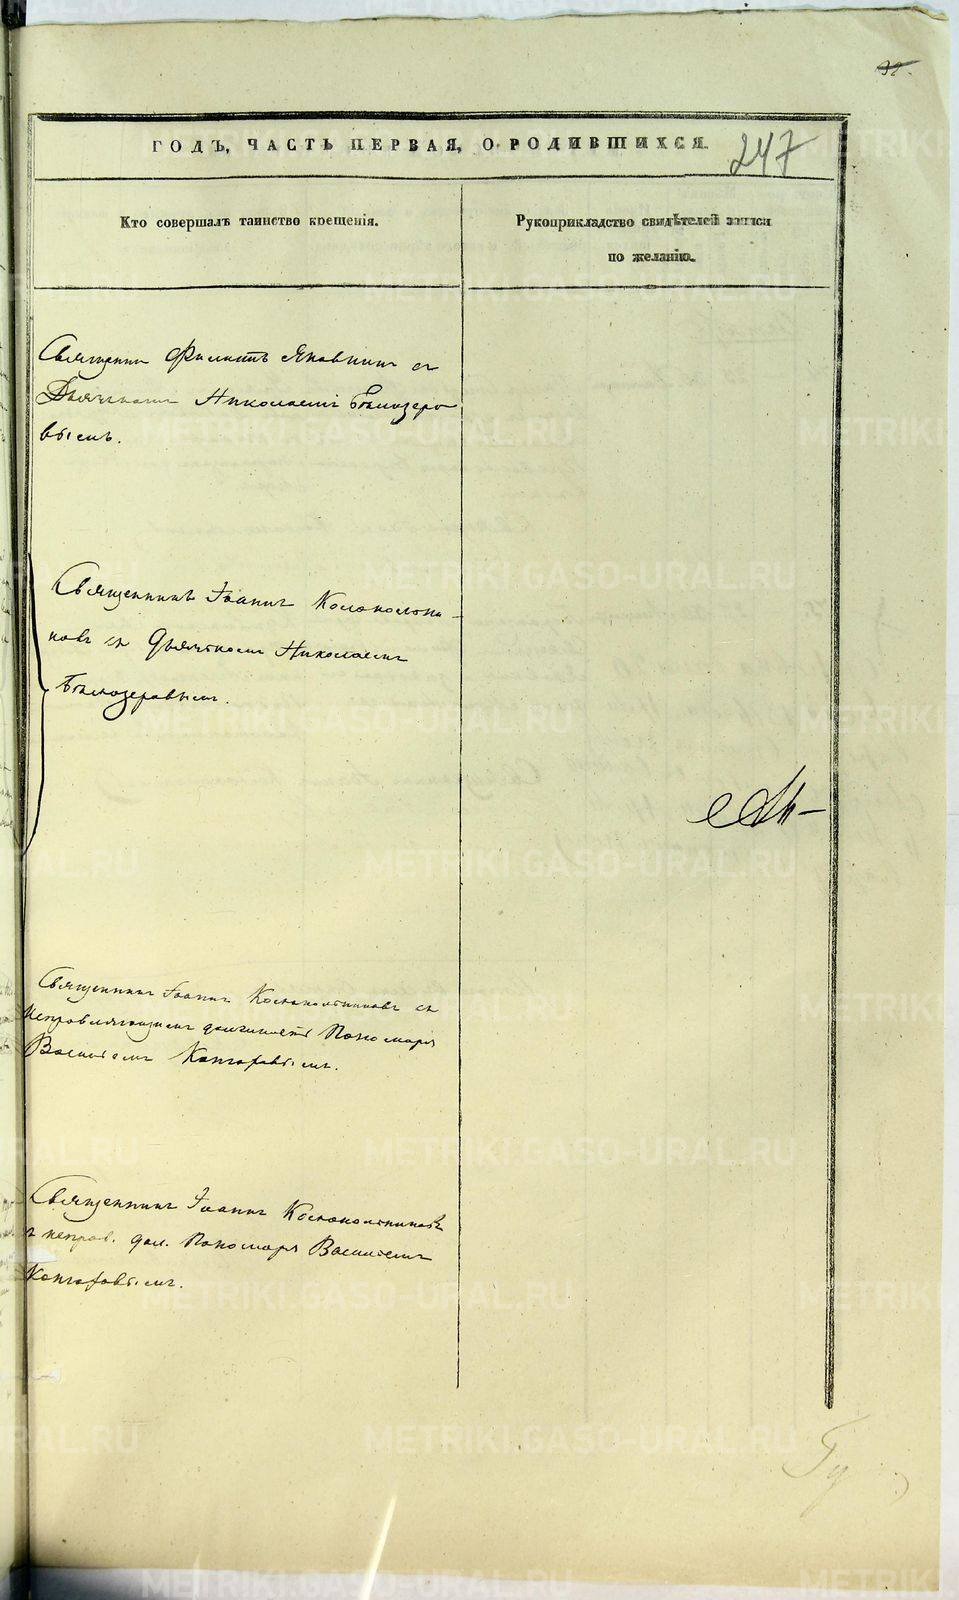 38.
ГОДЪ, ЧАСТЬ ПЕРВАЯ, О РОДИВШИХСЯ.
247
Кто совершалъ таинство крещенія.
Рукоприкладство свидѣтелей записи
по желанію.
Священникъ Филиппъ с
Дьячкомъ Николаемъ Бѣлозеро
вымъ.
Священникъ Іоаннъ Колокольни-
ковъ съ Дьячкомъ Николаемъ
Бѣлозеровымъ.
Священникъ Іоаннъ Колокольниковъ съ
Исправляющимъ должность Пономаря
Василіемъ
Священникъ Іоаннъ Колокольниковъ
съ исправ. дол. Пономаря Василіемъ
METRIKI.GASO-URAL.RU